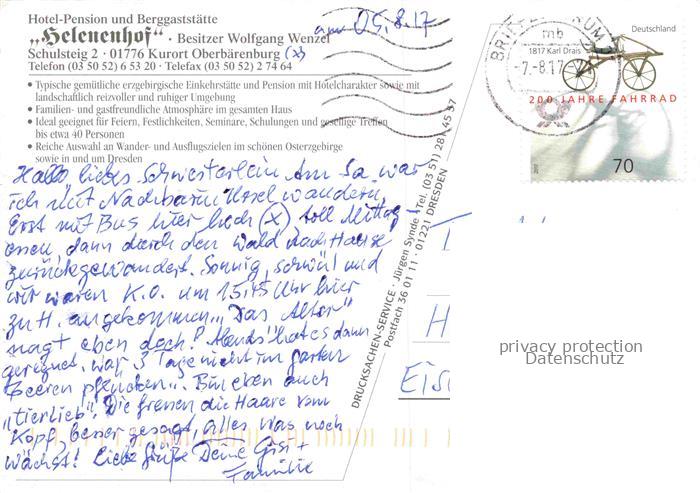 Hotel-Pension und Berggaststätte
„Helenenhof“ · Besitzer Wolfgang Wenzel
Schulsteig 2 · 01776 Kurort Oberbärenburg (x)
Telefon (03 50 52) 6 53 20 · Telefax (03 50 52) 2 74 64
• Typische gemütliche erzgebirgische Einkehrstätte und Pension mit Hotelcharakter sowie mit
landschaftlich reizvoller und ruhiger Umgebung
• Familien- und gastfreundliche Atmosphäre im gesamten Haus
• Ideal geeignet für Feiern, Festlichkeiten, Seminare, Schulungen und gesellige Treffen
bis etwa 40 Personen
• Reiche Auswahl an Wander- und Ausflugszielen im schönen Osterzgebirge
sowie in und um Dresden
am 05.8.17
Hallo liebes Schwesterlein Am Sa. war
ich mit Nachbarin Ursel wandern.
Erst mit Bus hier hoch (X) toll Mittag-
essen, dann durch den Wald nach Hause
zurückgewandert. Sonnig, schwül und
wir waren K.O. um 15,45 Uhr hier
zu H. angekommen. „Das Alter“
nagt eben doch! Abends hat es dann
geregnet, war 3 Tage nicht im Garten
Beeren pflücken. Bin eben auch
„tierlieb“. Die fressen die Haare vom
Kopf, besser gesagt, alles was noch
wächst! Liebe Grüße Deine Gisi +
Familie
DRUCKSACHEN-SERVICE · Jürgen Synde · Tel. (03 51) 28 45 97
Postfach 36 01 11 · 01221 DRESDEN
BRIEFZENTRUM
mb
-7.-8.17
Deutschland
1817 Karl Drais
200 JAHRE FAHRRAD
70
H
Eis
privacy protection
Datenschutz